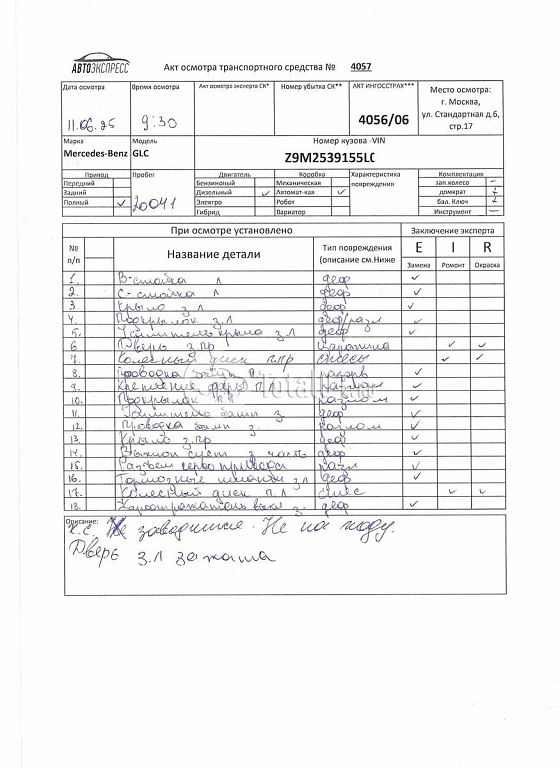 АВТОЭКСПРЕСС
Акт осмотра транспортного средства № 4057
Дата осмотра
Время осмотра
Акт осмотра эксперта СК*
Номер убытка СК**
АКТ ИНГОССТРАХ***
Место осмотра:
г. Москва,
ул. Стандартная д.6,
стр.17
11.06.25
9:30
4056/06
Марка
Модель
Номер кузова -VIN
Mercedes-Benz
GLC
Z9M2539155L
Привод
Пробег
Двигатель
Коробка
Характеристика
повреждения
Комплектация
Передний
Бензиновый
Механическая
зап.колесо –
Задний
Дизельный ✓
Автомат-кая ✓
домкрат +
Полный ✓
20041
Электро
Робот
бал. Ключ +
Гибрид
Вариатор
Инструмент –
При осмотре установлено
Заключение эксперта
№
п/п
Название детали
Тип повреждения
(описание см.Ниже
E I R
Замена Ремонт Окраска
1. В-стойка л деф ✓
2. С-стойка л деф ✓
3. Крыло з.л деф ✓
4. Подкрылок з.л деф/разл ✓
5. крыла з.л деф ✓
6 Дверь з.пр царапина ✓ ✓
7. Колесный диск п.пр срезы ✓ ✓
8. Проводка п. разрв ✓
9. Крепление фары п.л разлом ✓
10. Подкрылок п.л разлом ✓
11. Усилитель бамп з. деф ✓
12. Проводка бамп з. разлом ✓
13. Крыло з.пр деф ✓
14. Выхлоп сист з часть деф ✓
15. Разъем сервопривода разл ✓
16. Тормозные шланги з.л деф ✓
17. Колесный диск п.л срез ✓ ✓
18. Жароотражатель выхл з. деф ✓
Описание:
Х.С. Не заводится. Не на ходу.
Дверь з.л зажата